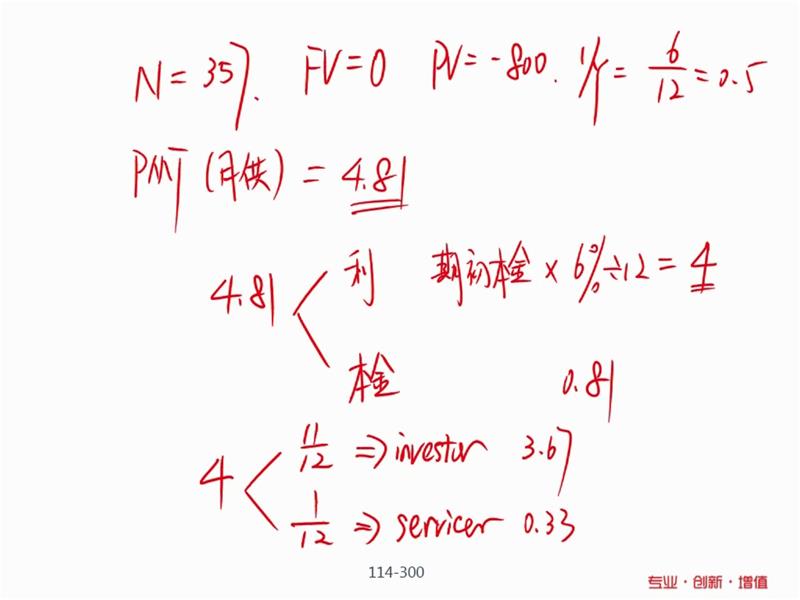 N = 357. FV = 0 PV = -800. I/Y = 6/12 = 0.5
PMT (月供) = 4.81
4.81 < 利 期初本金 × 6% ÷ 12 = 4
本金 0.81
4 < 11/12 => investor 3.67
1/12 => servicer 0.33
114-300
专业·创新·增值